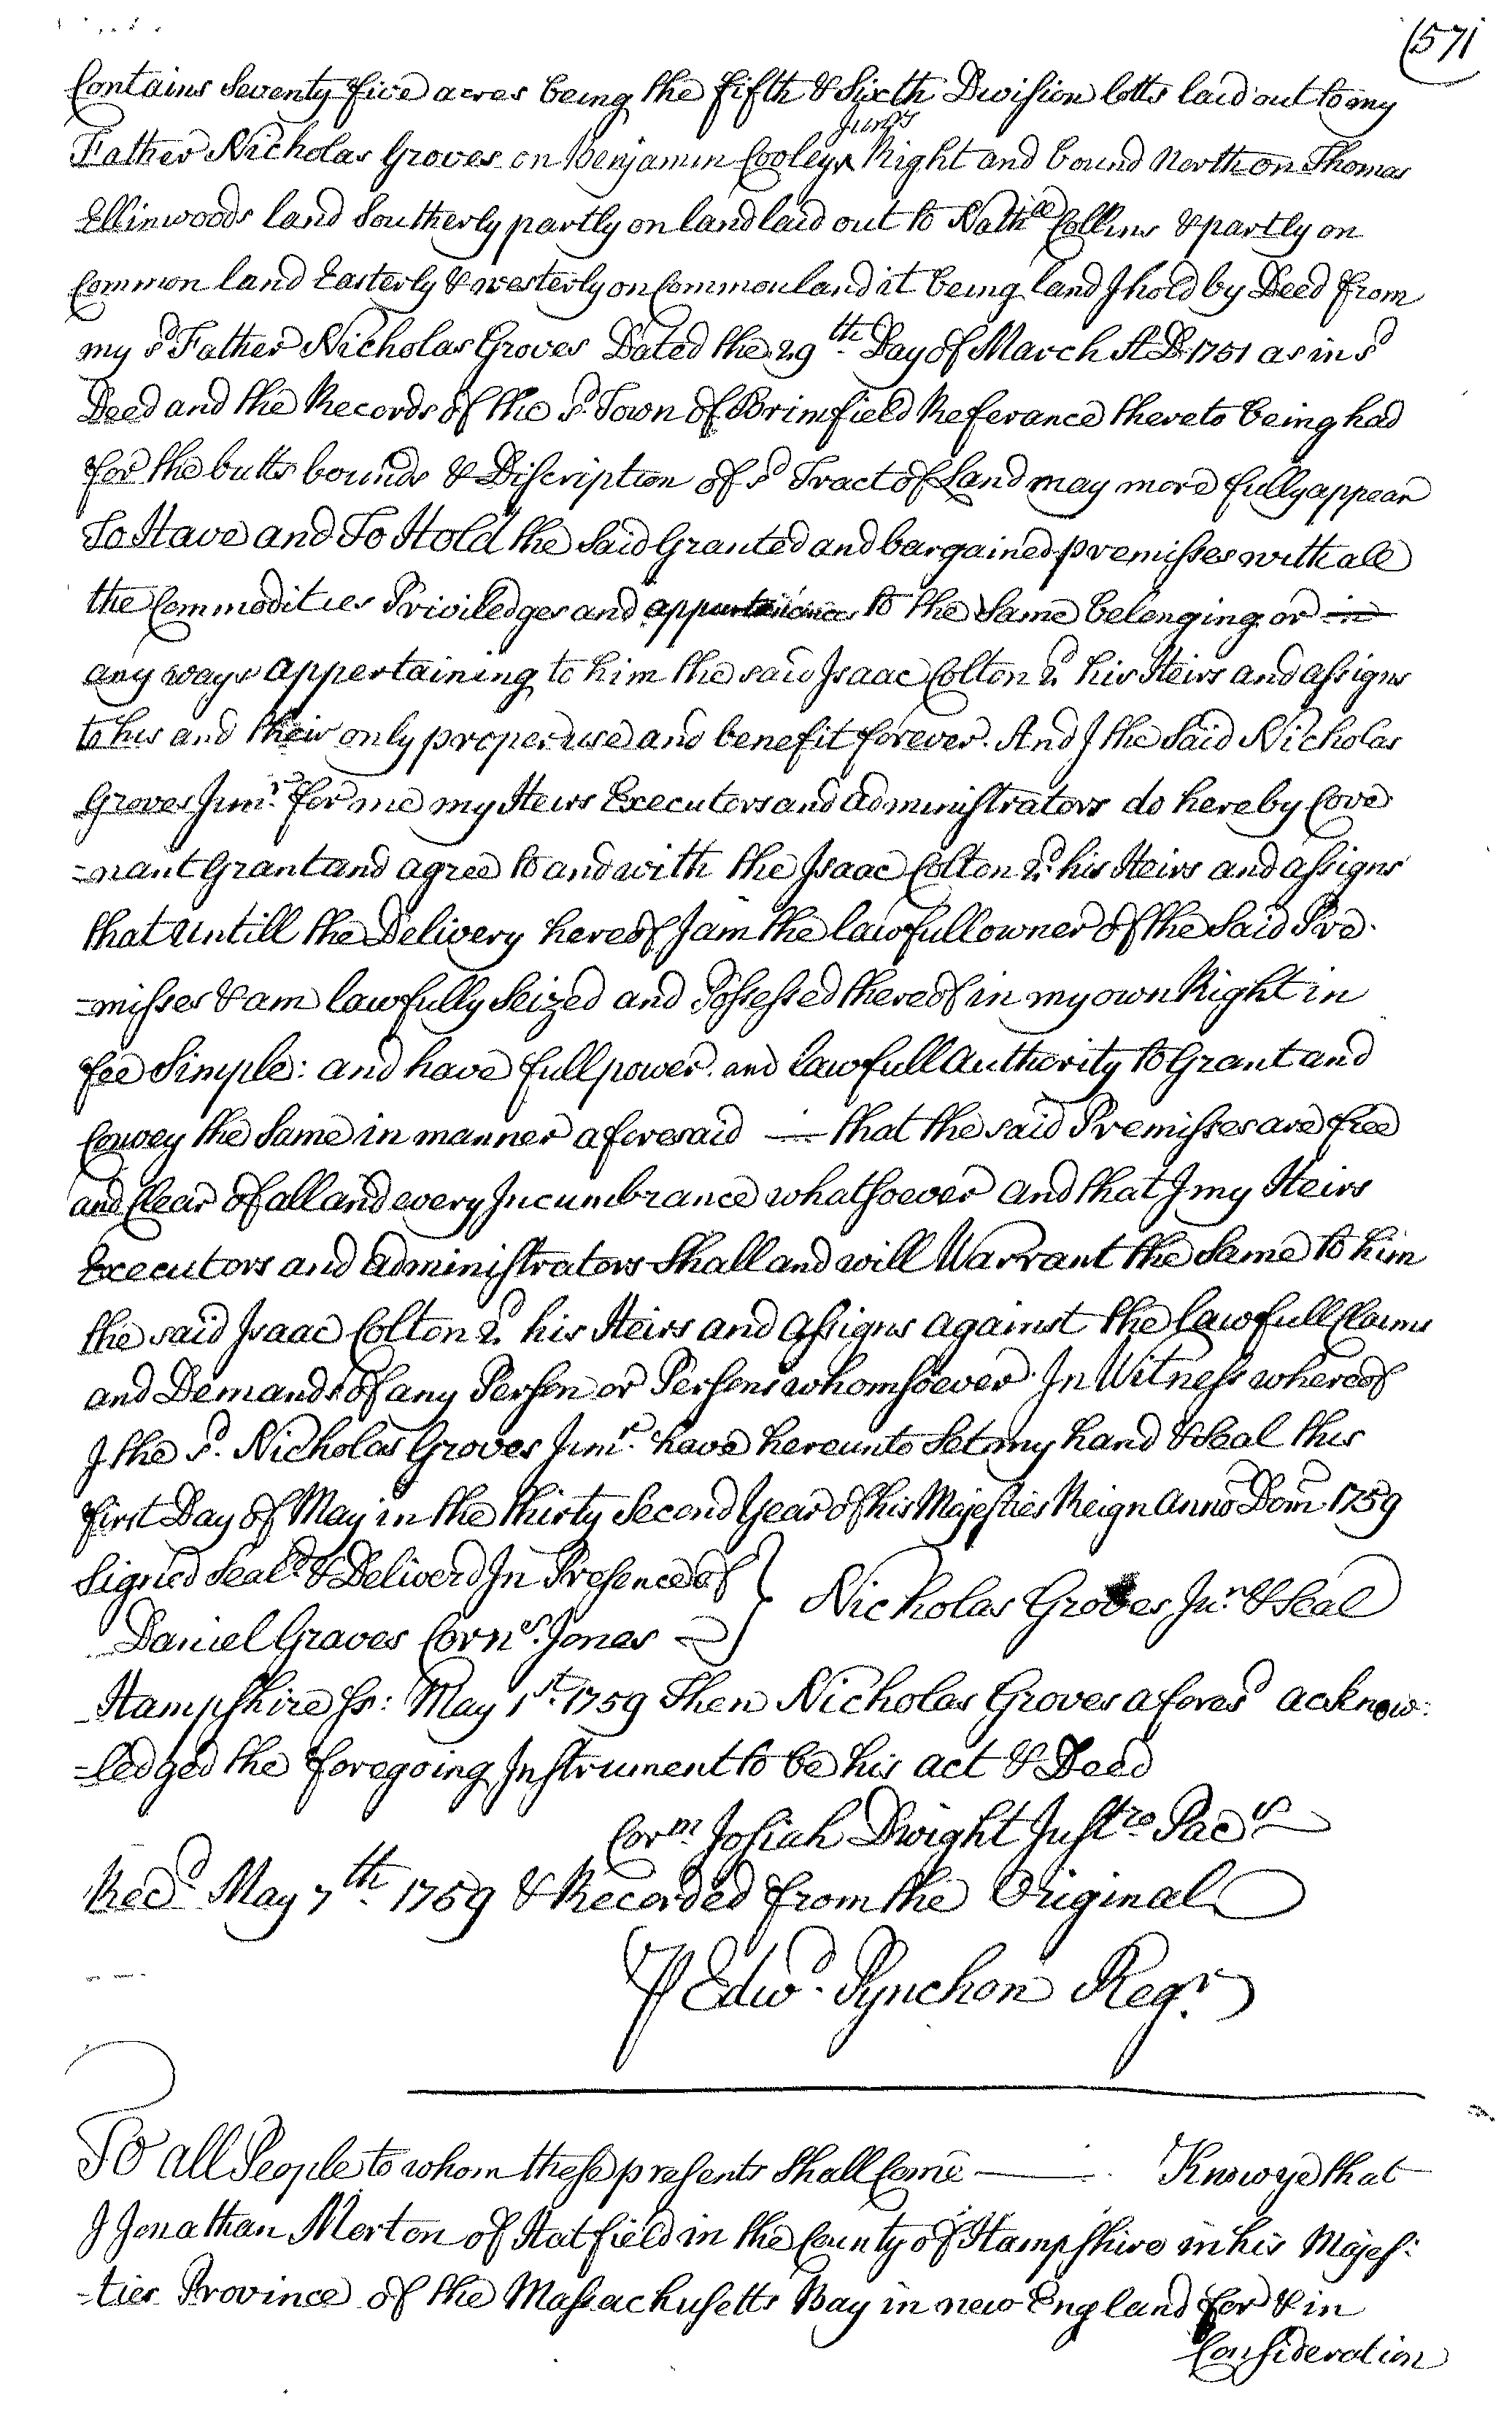 (571
Contains Seventy five acres being the fifth & Sixth Division lotts laid out to my
Junrs
Father Nicholas Groves on Benjamin Cooleys ^ Right and bound North on Thomas
Ellinwoods land Southerly partly on land laid out to Nathll Collins & partly on
Common land Easterly & westerly on Common land it being land I hold by Deed from
my sd Father Nicholas Groves Dated the 29th Day of March A:D: 1751 as in sd
Deed and the Records of the sd Town of Brimfield Referance thereto being had
for the butts bounds & Discription of sd Tract of Land may more fully appear
To Have and To Hold the Said Granted and bargained premisses with all
the Commodities Priviledges and appurtenances to the Same belonging or in
any ways appertaining to him the said Isaac Colton 2d his Heirs and assigns
to his and their only proper use and benefit forever. And I the Said Nicholas
Groves Junr. for me my Heirs Executors and administrators do hereby Cove
=nant Grant and agree to and with the Isaac Colton 2d his Heirs and assigns
that untill the Delivery hereof I am the lawfull owner of the Said Pre-
=misses & am lawfully Seized and Possessed thereof in my own Right in
fee Simple: and have full power and Lawfull authority to Grant and
Convey the Same in manner aforesaid — that the said Premisses are free
and Clear of all and every Incumbrance whatsoever and that I my Heirs
Executors and administrators Shall and will Warrant the Same to him
the said Isaac Colton 2d his Heirs and assigns against the lawfull Claims
and Demands of any Person or Persons whomsoever In Witness whereof
I the sd. Nicholas Groves Junr. have hereunto Set my hand & Seal this
first Day of May in the thirty Second Year of his Majesties Reign Anno Dom 1759
Signed Seald & Deliverd In Presence of } Nicholas Groves Junr. & Seal
Daniel Graves Corns. Jones
Hampshire ss: May 1st. 1759 Then Nicholas Groves aforesd acknow-
=ledged the foregoing Instrument to be his act & Deed
Corm Josiah Dwight Justce Pacs
Recd May 7th. 1759 & Recorded from the Original
P Edwd. Pynchon Regr.
To all People to whom these presents Shall Come — Know ye that
I Jonathan Morton of Hatfield in the County of Hampshire in his Majes-
=ties Province of the Massachusetts Bay in new England for & in
Consideration